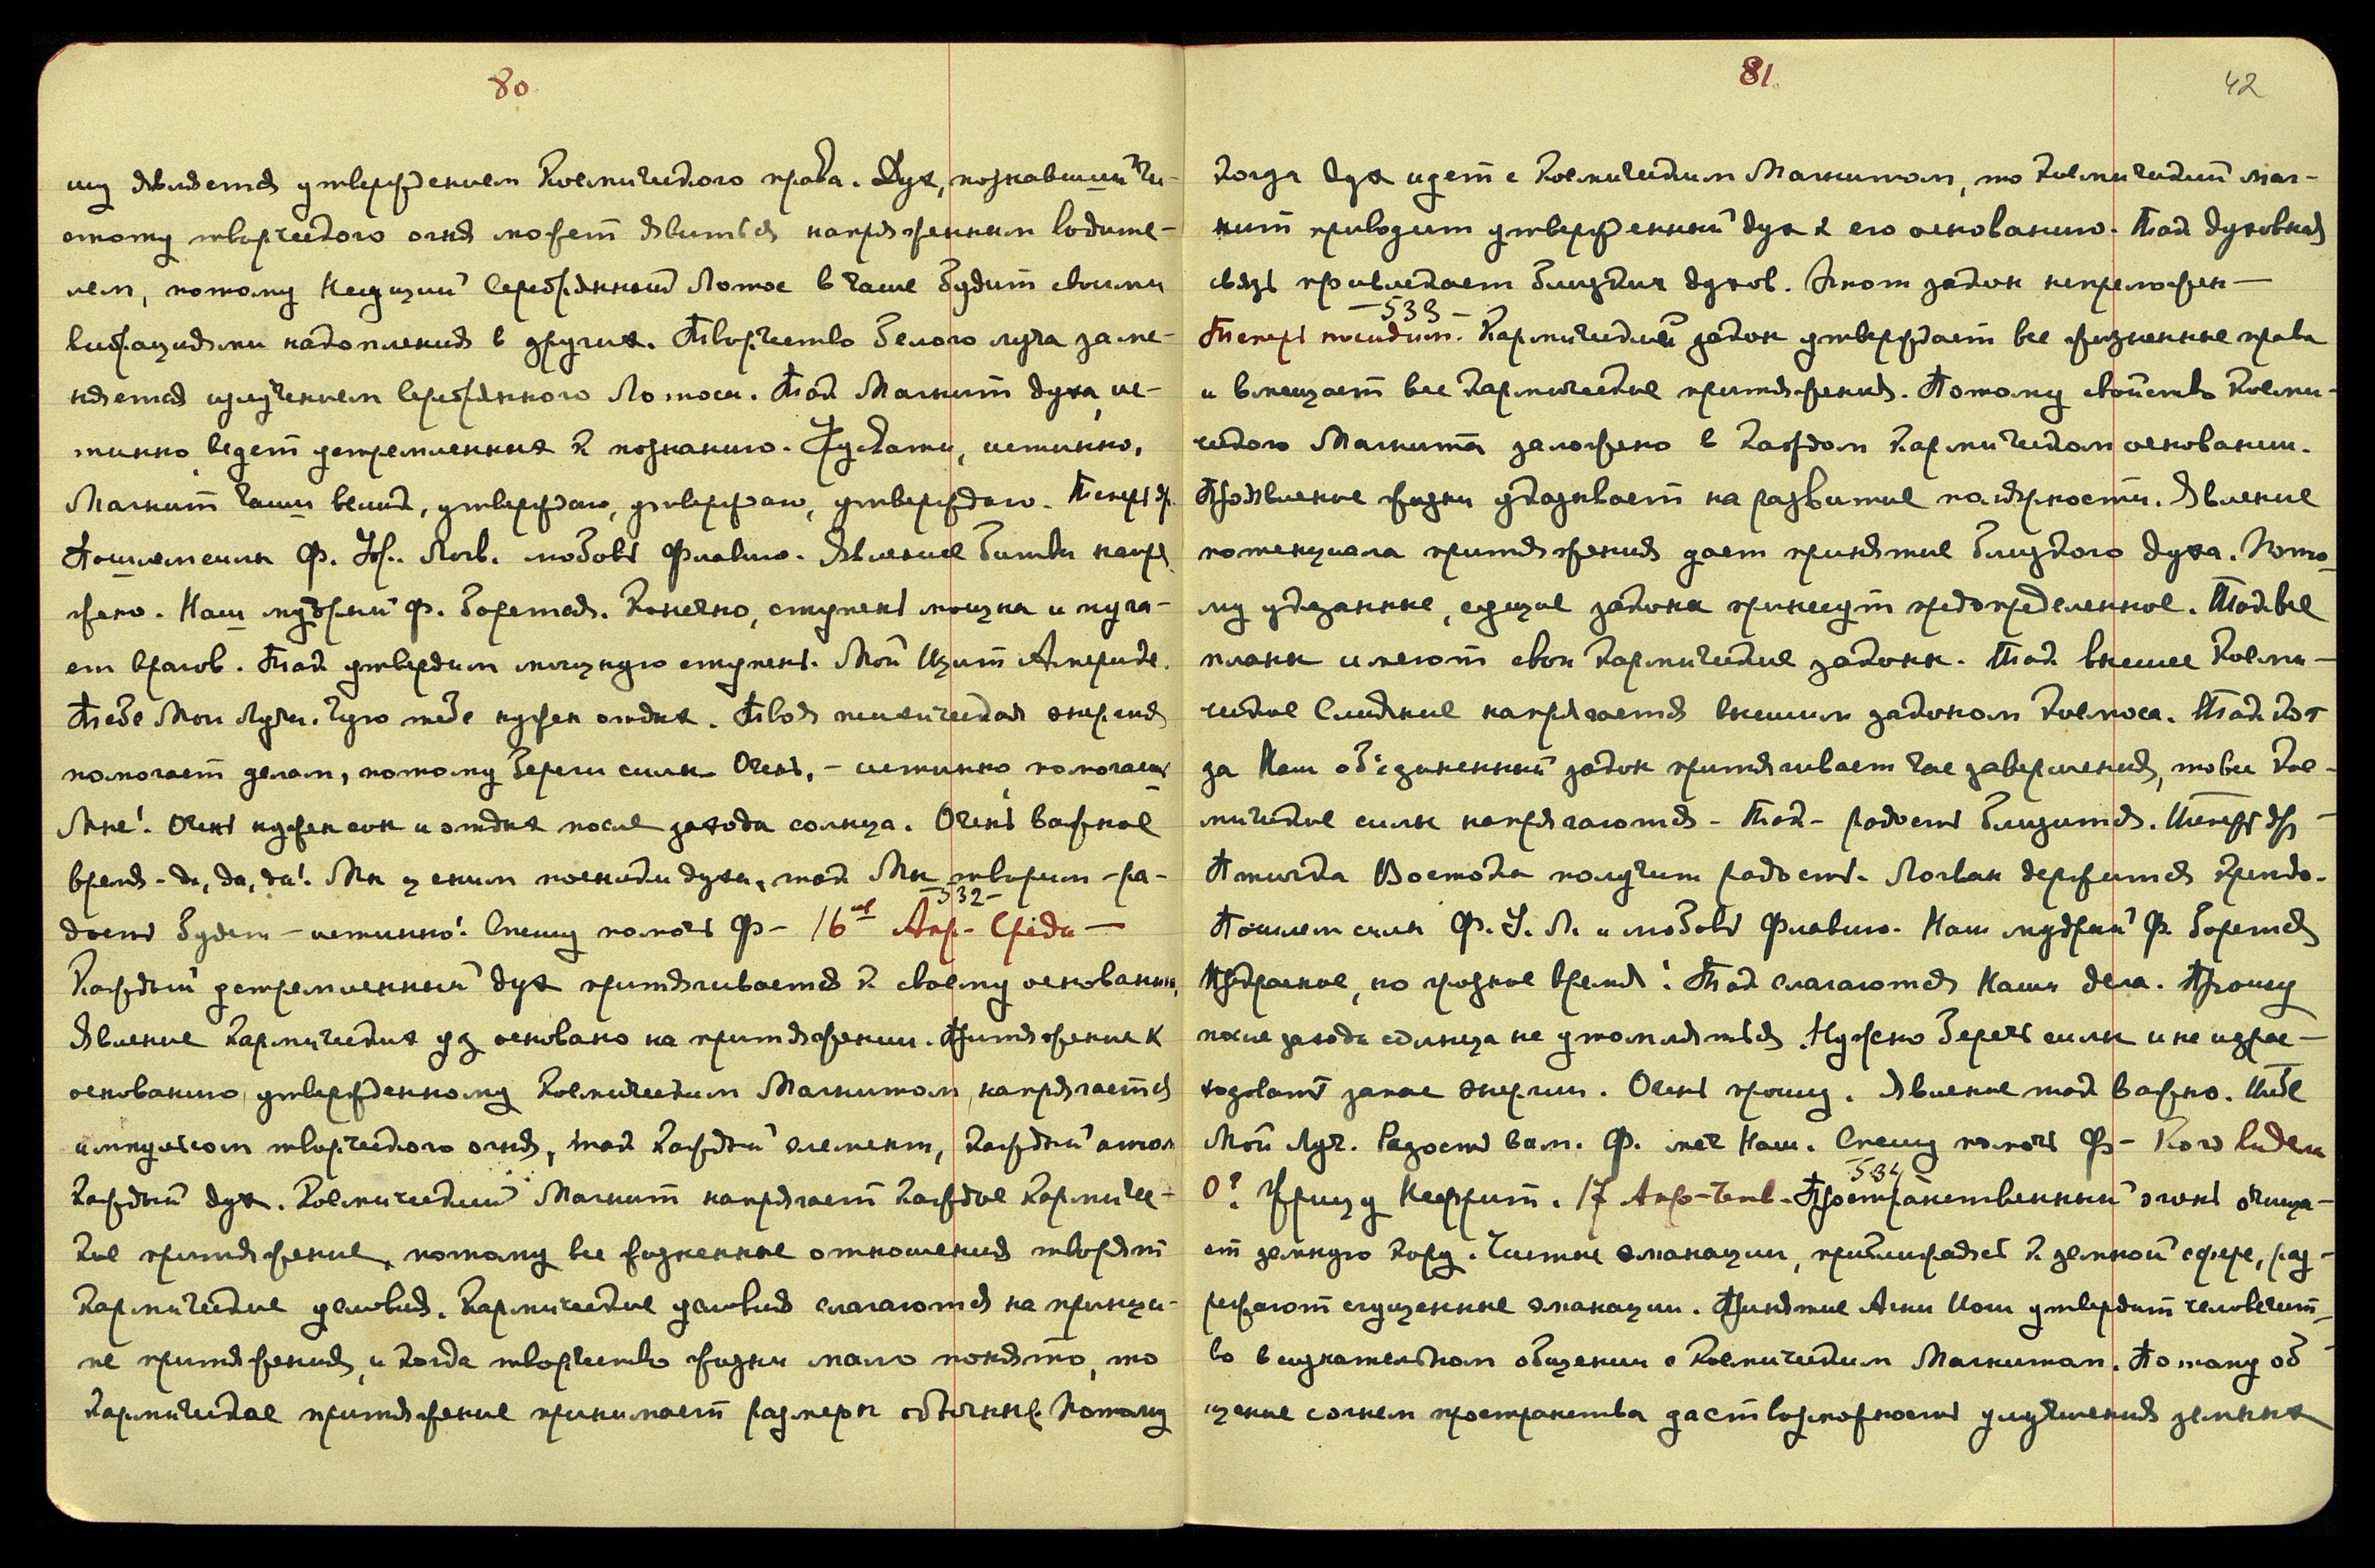 80
щу является утверждением Космического права. Дух, познавший чи-
стоту творческого огня может явиться напряженным водите-
лем, потому Несущий Серебрянный Лотос в чаше будит своими
вибрациями накопления в других. Творчество белого луча заме-
няется излучением Серебрянного Лотоса. Так Магнит духа, ис-
тинно, ведет устремленных к познанию. Чудеса, истинно,
Магнит чаши велик, утверждаю, утверждаю, утверждаю. Теперь др.
Пошлем силы Ф. Логв. любовь Флавию. Явление битвы напря
жено. Наш мудрый Ф. борется. Конечно, ступень мощна и пуга-
ет врагов. Так утвердим мощную ступень. Мой Щит Америке.
Тебе Мои Лучи. Чую тебе нужен отдых. Твоя психическая энергия
помогает делам, потому береги силы. Очень, – истинно, помогаешь
Мне! Очень нужен сон и отдых после захода солнца. Очень важное
время – да, да, да! Мы ценим посылки духа, так Мы творим – ра-
– 532 –
дость будет – истинно! Спешу помочь Ф – 16ое Апр. – Среда –
Каждый устремленный дух притягивается к своему основанию,
Явление кармических уз основано на притяжении. Притяжение к
основанию, утвержденному Космическим Магнитом, напрягается
импульсом творческого огня, так каждый элемент, каждый атом
каждый дух. Космический Магнит напрягает каждое кармичес-
кое притяжение, потому все жизненные отношения творят
кармические условия. Кармические условия слагаются на принци-
пе притяжения, и когда творчество жизни мало понято, то
кармическое притяжение принимает размеры обычные. Потому
81.
42
когда дух идет с Космическим Магнитом, то Космический Маг-
нит приводит утвержденный дух к его основанию. Так духовная
связь привлекает близких духов. Этот закон непреложен –
– 533 –
Теперь посидим. Кармический закон утверждает все жизненные права
и вмещает все кармические притяжения. Потому свойство Косми-
ческого Магнита заложено в каждом кармическом основании.
Проявление жизни указывает на развитие полярности. Явление
потенциала притяжения дает принятие близкого духа. Пото
му указанные, сущие закона принесут предопределенное. Так все
планы имеют свои кармические законы. Так высшее Косми-
ческое Слияние напрягается высшим законом Космоса. Так ког
да Наш объединенный закон притягивает час завершения, то все Кос-
мические силы напрягаются – Так – радость близится. Теперь др –
Птичка Востока получит радость. Логван держится крепко.
Пошлем силы Ф. У. Л. и любовь Флавию. Наш мудрый Ф. борется
Прекрасное, но грозное время! Так слагаются Наши дела. Прошу
после захода солнца не утомляться. Нужно беречь силы и не израс-
ходовать запас энергии. Очень прошу. Явление так важно. Тебе
Мой Луч. Радость вам. Ф. меч Наш. Спешу помочь Ф – Кого видела
– 534
О? Нефрит. 17 Апр – Четв – Пространственный огонь очища-
ет земную кору. Чистые эманации, приближаясь к земной сфере, раз-
режают сгущенные эманации. Принятие Агни Йоги утвердит человечест-
во в сознательном общении с Космическим Магнитом. Потому об
щение с огнем пространства даст возможность улучшения земных